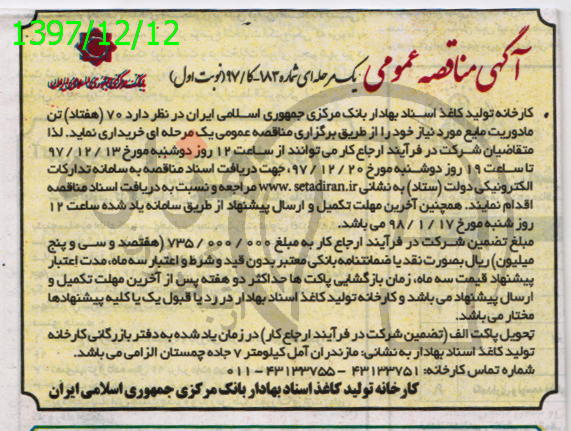 1397/12/12
آگهی مناقصه عمومی یک مرحله ای شماره ۱۸۳-کا/۹۷ (نوبت اول)
بانک مرکزی جمهوری اسلامی ایران
• کارخانه تولید کاغذ اسناد بهادار بانک مرکزی جمهوری اسلامی ایران در نظر دارد ۷۰ (هفتاد) تن
مادوریت مایع مورد نیاز خود را از طریق برگزاری مناقصه عمومی یک مرحله ای خریداری نماید. لذا
متقاضیان شرکت در فرآیند ارجاع کار می توانند از ساعت ۱۲ روز دوشنبه مورخ ۹۷/۱۲/۱۳
تا ساعت ۱۹ روز دوشنبه مورخ ۹۷/۱۲/۲۰، جهت دریافت اسناد مناقصه به سامانه تدارکات
الکترونیکی دولت (ستاد) به نشانی www.setadiran.ir مراجعه و نسبت به دریافت اسناد مناقصه
اقدام نمایند. همچنین آخرین مهلت تکمیل و ارسال پیشنهاد از طریق سامانه یاد شده ساعت ۱۲
روز شنبه مورخ ۹۸/۱/۱۷ می باشد.
مبلغ تضمین شرکت در فرآیند ارجاع کار به مبلغ ۷۳۵/۰۰۰/۰۰۰ (هفتصد و سی و پنج
میلیون) ریال بصورت نقد یا ضمانتنامه بانکی معتبر بدون قید و شرط و اعتبار سه ماه، مدت اعتبار
پیشنهاد قیمت سه ماه، زمان بازگشایی پاکت ها حداکثر دو هفته پس از آخرین مهلت تکمیل و
ارسال پیشنهاد می باشد و کارخانه تولید کاغذ اسناد بهادار در رد یا قبول یک یا کلیه پیشنهادها
مختار می باشد.
تحویل پاکت الف (تضمین شرکت در فرآیند ارجاع کار) در زمان یاد شده به دفتر بازرگانی کارخانه
تولید کاغذ اسناد بهادار به نشانی: مازندران آمل کیلومتر ۷ جاده چمستان الزامی می باشد.
شماره تماس کارخانه: ۴۳۱۳۳۷۵۱ - ۴۳۱۳۳۷۵۵-۰۱۱
کارخانه تولید کاغذ اسناد بهادار بانک مرکزی جمهوری اسلامی ایران